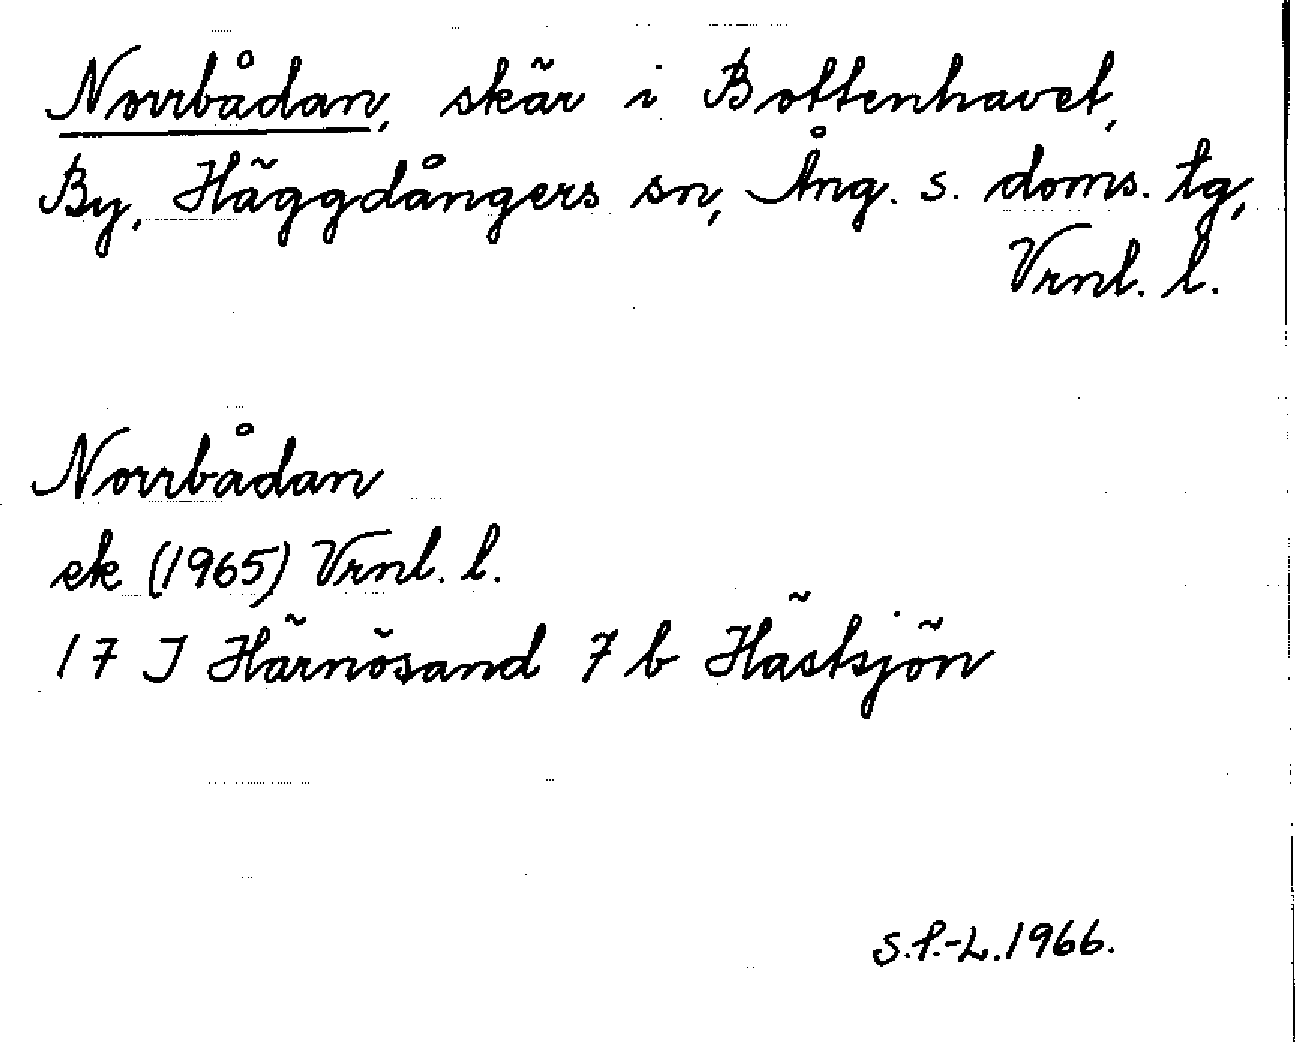 Norrbådan, skär i Bottenhavet,
By, Häggdångers sn, Ång. s. doms. tg,
Vrnl. l.
Norrbådan
ek (1965) Vrnl. l.
17 I Härnösand 7 b Hästsjön
S.P.-L. 1966.